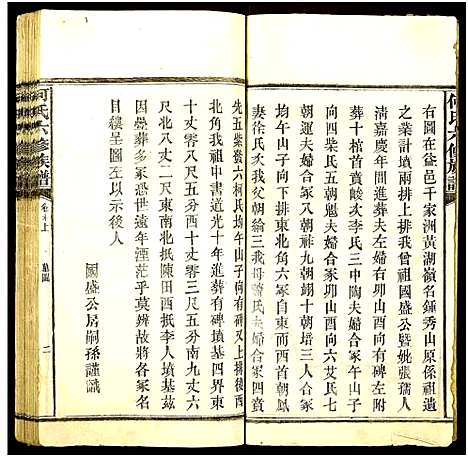 何氏六修族譜
右圖在益邑千家洲黃湖嶺名鍾秀山原係祖遺
之業計墳兩排上排我曾祖國盛公暨妣張孺人
清嘉慶年間進葬夫左婦右卯山酉向前後左右附
葬十棺首慶歇李氏三中陶夫婦合冢午山子
向四柴氏五朝魁夫婦合冢卯山酉向六艾氏七
朝運夫婦合冢八朝祚九朝翊十朝培三人合冢
均午山子向下排東北角六冢自東而西首朝鳳
妻徐氏我父朝綸三我母蕭氏夫婦合冢四賁
先五紫發六柯氏均午山子向以上上排後西
北角我祖中書道光十年進葬有碑墳基四界東
十丈零八尺五分西十丈零三尺五分南九丈六
尺北八丈二尺東南北抵陳田西抵李人墳基茲
因疊葬多冢恐世遠年湮茫乎莫辨故將各冢名
目縷呈圖左以示後人
國盛公房嗣孫謹識
何氏六修族譜
卷 上
墓圖
二